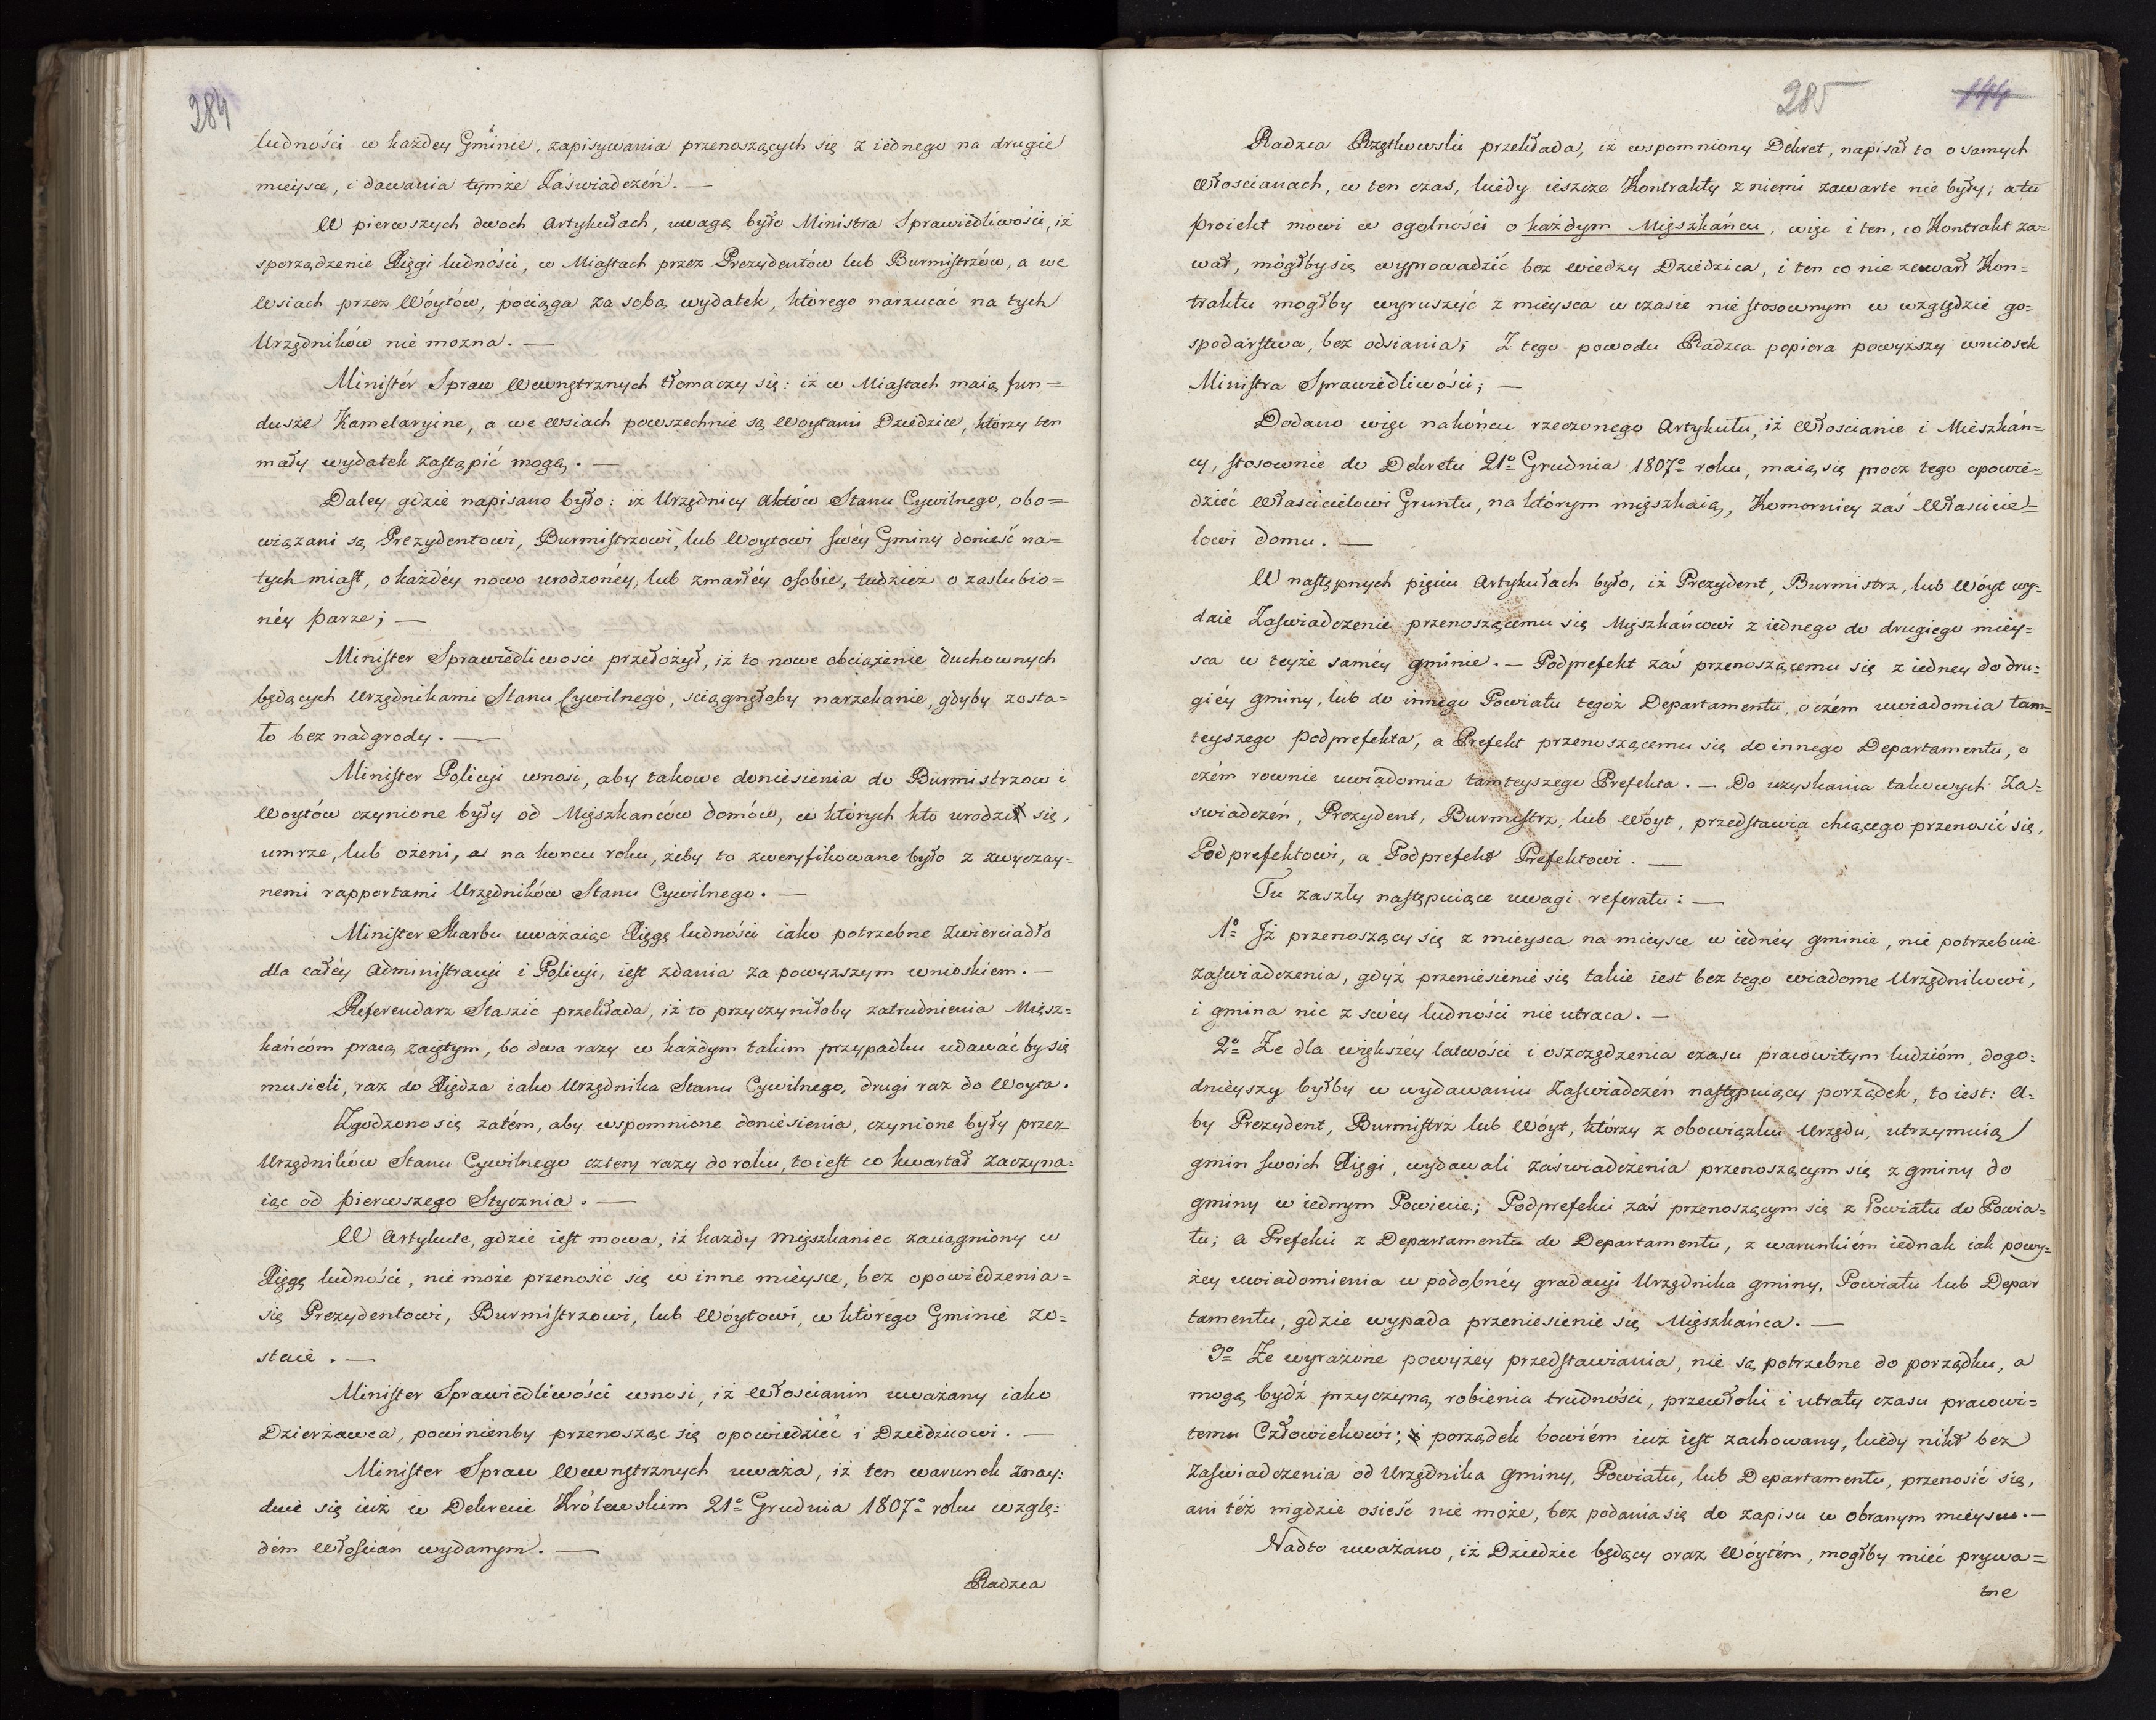 284
ludności w każdey Gminie, zapisywania przenoszących się z iednego na drugie
mieysce, i dawania tymże Zaświadczeń. —
W pierwszych dwoch Artykułach, uwagą było Ministra Sprawiedliwości, iż
sporządzenie Xięgi ludności, w Miastach przez Prezydentów lub Burmistrzów, a we
Wsiach przez Wóytów, pociąga za sobą wydatek, którego narzucać na tych
Urzędników nie mozna. —
Ministér Spraw Wewnętrznych tłomaczy się: iż w Miastach maią fun=
dusze Kamelaryine, a we wsiach powszechnie są Woytami Dziedzice, którzy ten
mały wydatek zastąpić mogą. —
Daley gdzie napisano było: iż Urzędnicy Aktów Stanu Cywilnego, obo=
wiązani są Prezydentowi, Burmistrzowi, lub Woytowi swéy Gminy donieść na=
tychmiast, o każdéy nowo urodzonéy, lub zmarłéy osobie, tudzież o zaslubio=
néy parze; —
Minister Sprawiedliwosci przełożył, iż to nowe obciążenie duchownych
będących Urzędnikami Stanu Cywilnego, sciągnęłoby narzekanie, gdyby zosta=
ło bez nadgrody. —
Minister Policyi wnosi, aby takowe doniesienia do Burmistrzow i
Woytów czynione były od Mięszkanców domów, w których kto urodzi się,
umrze, lub ożeni, a na koncu roku, żeby to zweryfikowane było z zwyczay=
nemi rapportami Urzędników Stanu Cywilnego. —
Minister Skarbu uważaiąc Xięgę ludności iako potrzebne Zwierciadło
dla całéy Administracyi i Policyi, iest zdania za powyzszym wnioskiem. —
Referendarz Staszic przekłada, iż to przyczyniłoby zatrudnienia Mięsz=
kańcóm pracą zaiętym, bo dwa razy w każdym takim przypadku udawać by się
musieli, raz do Xiędza iako Urzędnika Stanu Cywilnego, drugi raz do Woyta.
Zgodzono się zatém, aby wspomnione doniesienia, czynione były przez
Urzędników Stanu Cywilnego cztery razy do roku, to iest co kwartał zaczyna=
iąc od pierwszego Stycznia. —
W Artykule, gdzie iest mowa, iż kazdy mięszkaniec zaciągniony w
Xięgę ludności, nie może przenosić się w inne mieysce, bez opowiedzenia=
się Prezydentowi, Burmistrzowi, lub Wóytowi, w którego Gminie zo=
staie. —
Minister Sprawiedliwości wnosi, iż Włoscianin uważany iako
Dzierżawca, powinienby przenosząc się opowiedzieć i Dziedzicowi. —
Minister Spraw Wewnętrznych uważa, iż ten warunek znay=
duie się iuż w Dekrecie Królewskim 21º Grudnia 1807º roku wzglę=
dém Włoscian wydanym. —
Radzca
285
144
Radzca Rzętkowski przekłada, iż wspomniony Dekret, napisał to o samych
Włoscianach, w ten czas, kiedy ieszcze Kontrakty z niemi zawarte nie były; a tu
proiekt mowi w ogolności o każdym Mięszkańcu, więc i ten, co Kontrakt za=
wał, mógłby się wyprowadzić bez wiedzy Dziedzica, i ten co nie zawarł Kon=
traktu mogłby wyruszyć z mieysca w czasie nie stosownym w względzie go=
spodarstwa, bez odsiania; Z tego powodu Radzca popiera powyższy wniosek
Ministra Sprawiedliwości; —
Dodano więc nakońcu rzeczonego Artykułu, iż Włoscianie i Mieszkán=
cy, stosownie do Dekretu 21º Grudnia 1807º roku, maią się procz tego opowie=
dzieć Właścicielowi Gruntu, na którym mięszkaią, Komornicy zaś Właściciе=
lowi domu. —
W następnych pięciu Artykułach było, iż Prezydent, Burmistrz, lub Wóyt wy=
daie Zaswiadczenie przenoszącemu się Mięszkańcowi z iednego do drugiego miey=
sca w teyże saméy gminie. — Podprefekt zaś przenoszącemu się z iedney do dru=
giéy gminy, lub do innego Powiatu tegoż Departamentu, o czém uwiadomia tam=
teyszego Podprefekta, a Prefekt przenoszącemu się do innego Departamentu, o
czém rownie uwiadomia tamteyszego Prefekta. — Do uzyskania takowych Za=
swiadczeń, Prezydent, Burmistrz, lub Wóyt, przedstawia chcącego przenosić się,
Podprefektowi, a Podprefekt Prefektowi. —
Tu zaszły następuiące uwagi referatu: —
1º Iż przenoszący się z mieysca na mieysce w iednéy gminie, nie potrzebuie
zaswiadczenia, gdyż przeniesienie się takie iest bez tego wiadome Urzędnikowi,
i gmina nic z swéy ludności nie utraca. —
2º Ze dla większéy latwości i oszczędzenia czasu pracowitym ludzióm, dogo=
dnieyszy byłby w wydawaniu Zaswiadczeń następuiący porządek, to iest: A=
by Prezydent, Burmistrz lub Wóyt, którzy z obowiązku Urzędu, utrzymuią
gmin swoich Xięgi, wydawali zaświadczenia przenoszącym się z gminy do
gminy w iednym Powiecie; Podprefekci zaś przenoszącym się z Powiatu do Powia=
tu; a Prefekci z Departamentu do Departamentu, z warunkiém iednak iak powy=
żey uwiadomienia w podobnéy gradacyi Urzędnika gminy, Powiatu lub Depar
tamentu, gdzie wypada przeniesienie się Mięszkańca. —
3º Ze wyrażone powyżey przedstawiania, nie są potrzebne do porządku, a
mogą bydź przyczyną robienia trudności, przewłoki i utraty czasu pracowi=
temu Człowiekowi; porządek bowiém iuż iest zachowany, kiedy nikt bez
Zaswiadczenia od Urzędnika gminy, Powiatu, lub Departamentu, przenosić się,
ani téż nigdzie osieść nie może, bez podania się do zapisu w obranym mieyscu. —
Nadto uważano, iż Dziedzic będący oraz Wóytém, mogłby mieć prywa=
tne